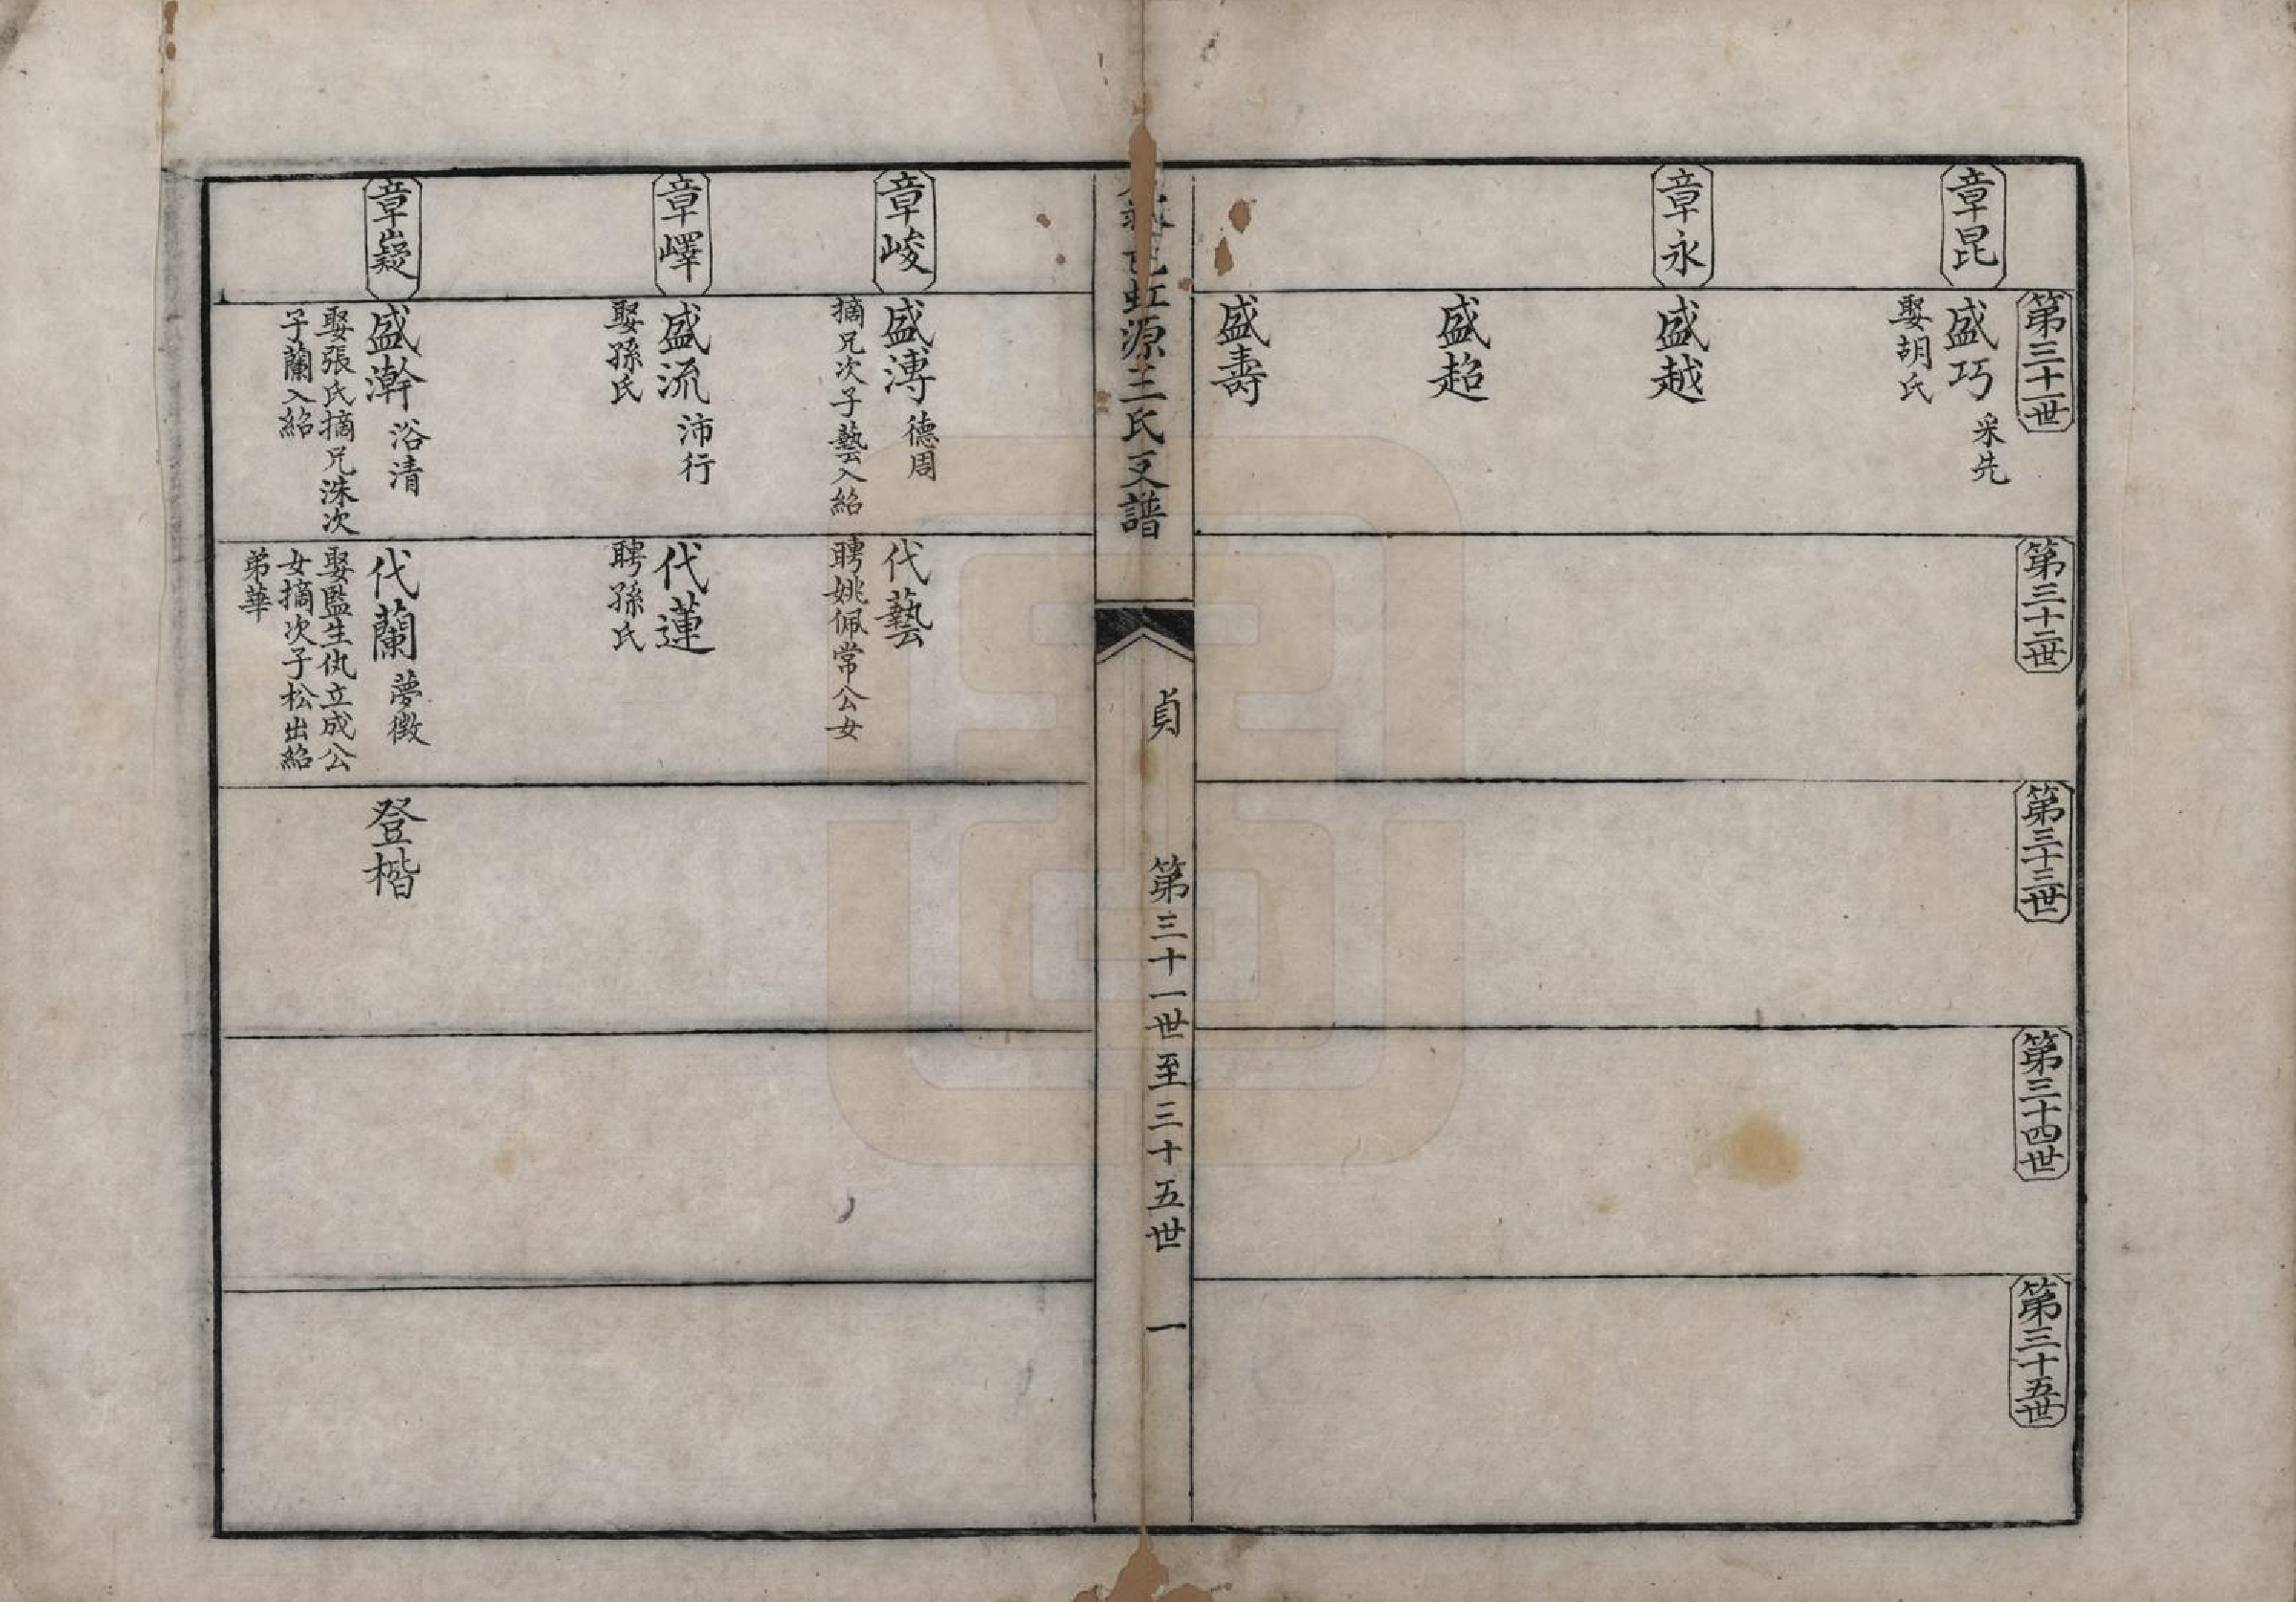 第三十一世
第三十二世
第三十三世
第三十四世
第三十五世
章昆
盛巧 采先
娶胡氏
章永
盛越
盛超
盛壽
虹源王氏支譜
貞
第三十一世至三十五世
一
章峻
盛溥 德周
摘兄次子藝入紹
代藝
聘姚佩常公女
章嶧
盛流 沛行
娶孫氏
代蓮
聘孫氏
章嶷
盛澣 浴清
娶張氏摘兄洙次
子蘭入紹
代蘭 夢徵
娶監生仇立成公
女摘次子松出紹
弟華
登楷